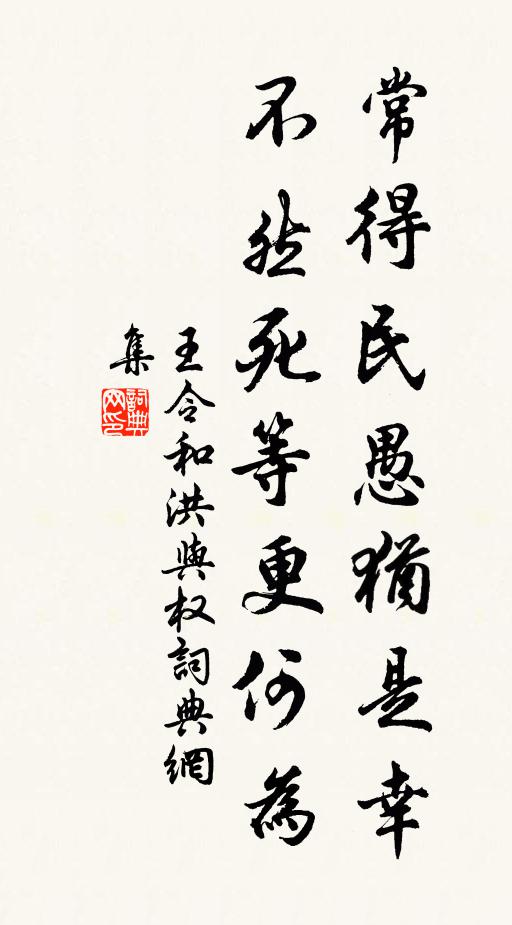 常得民愚猶是幸
不然死等更何為
王令和洪與权詞典網
集
詞典網印